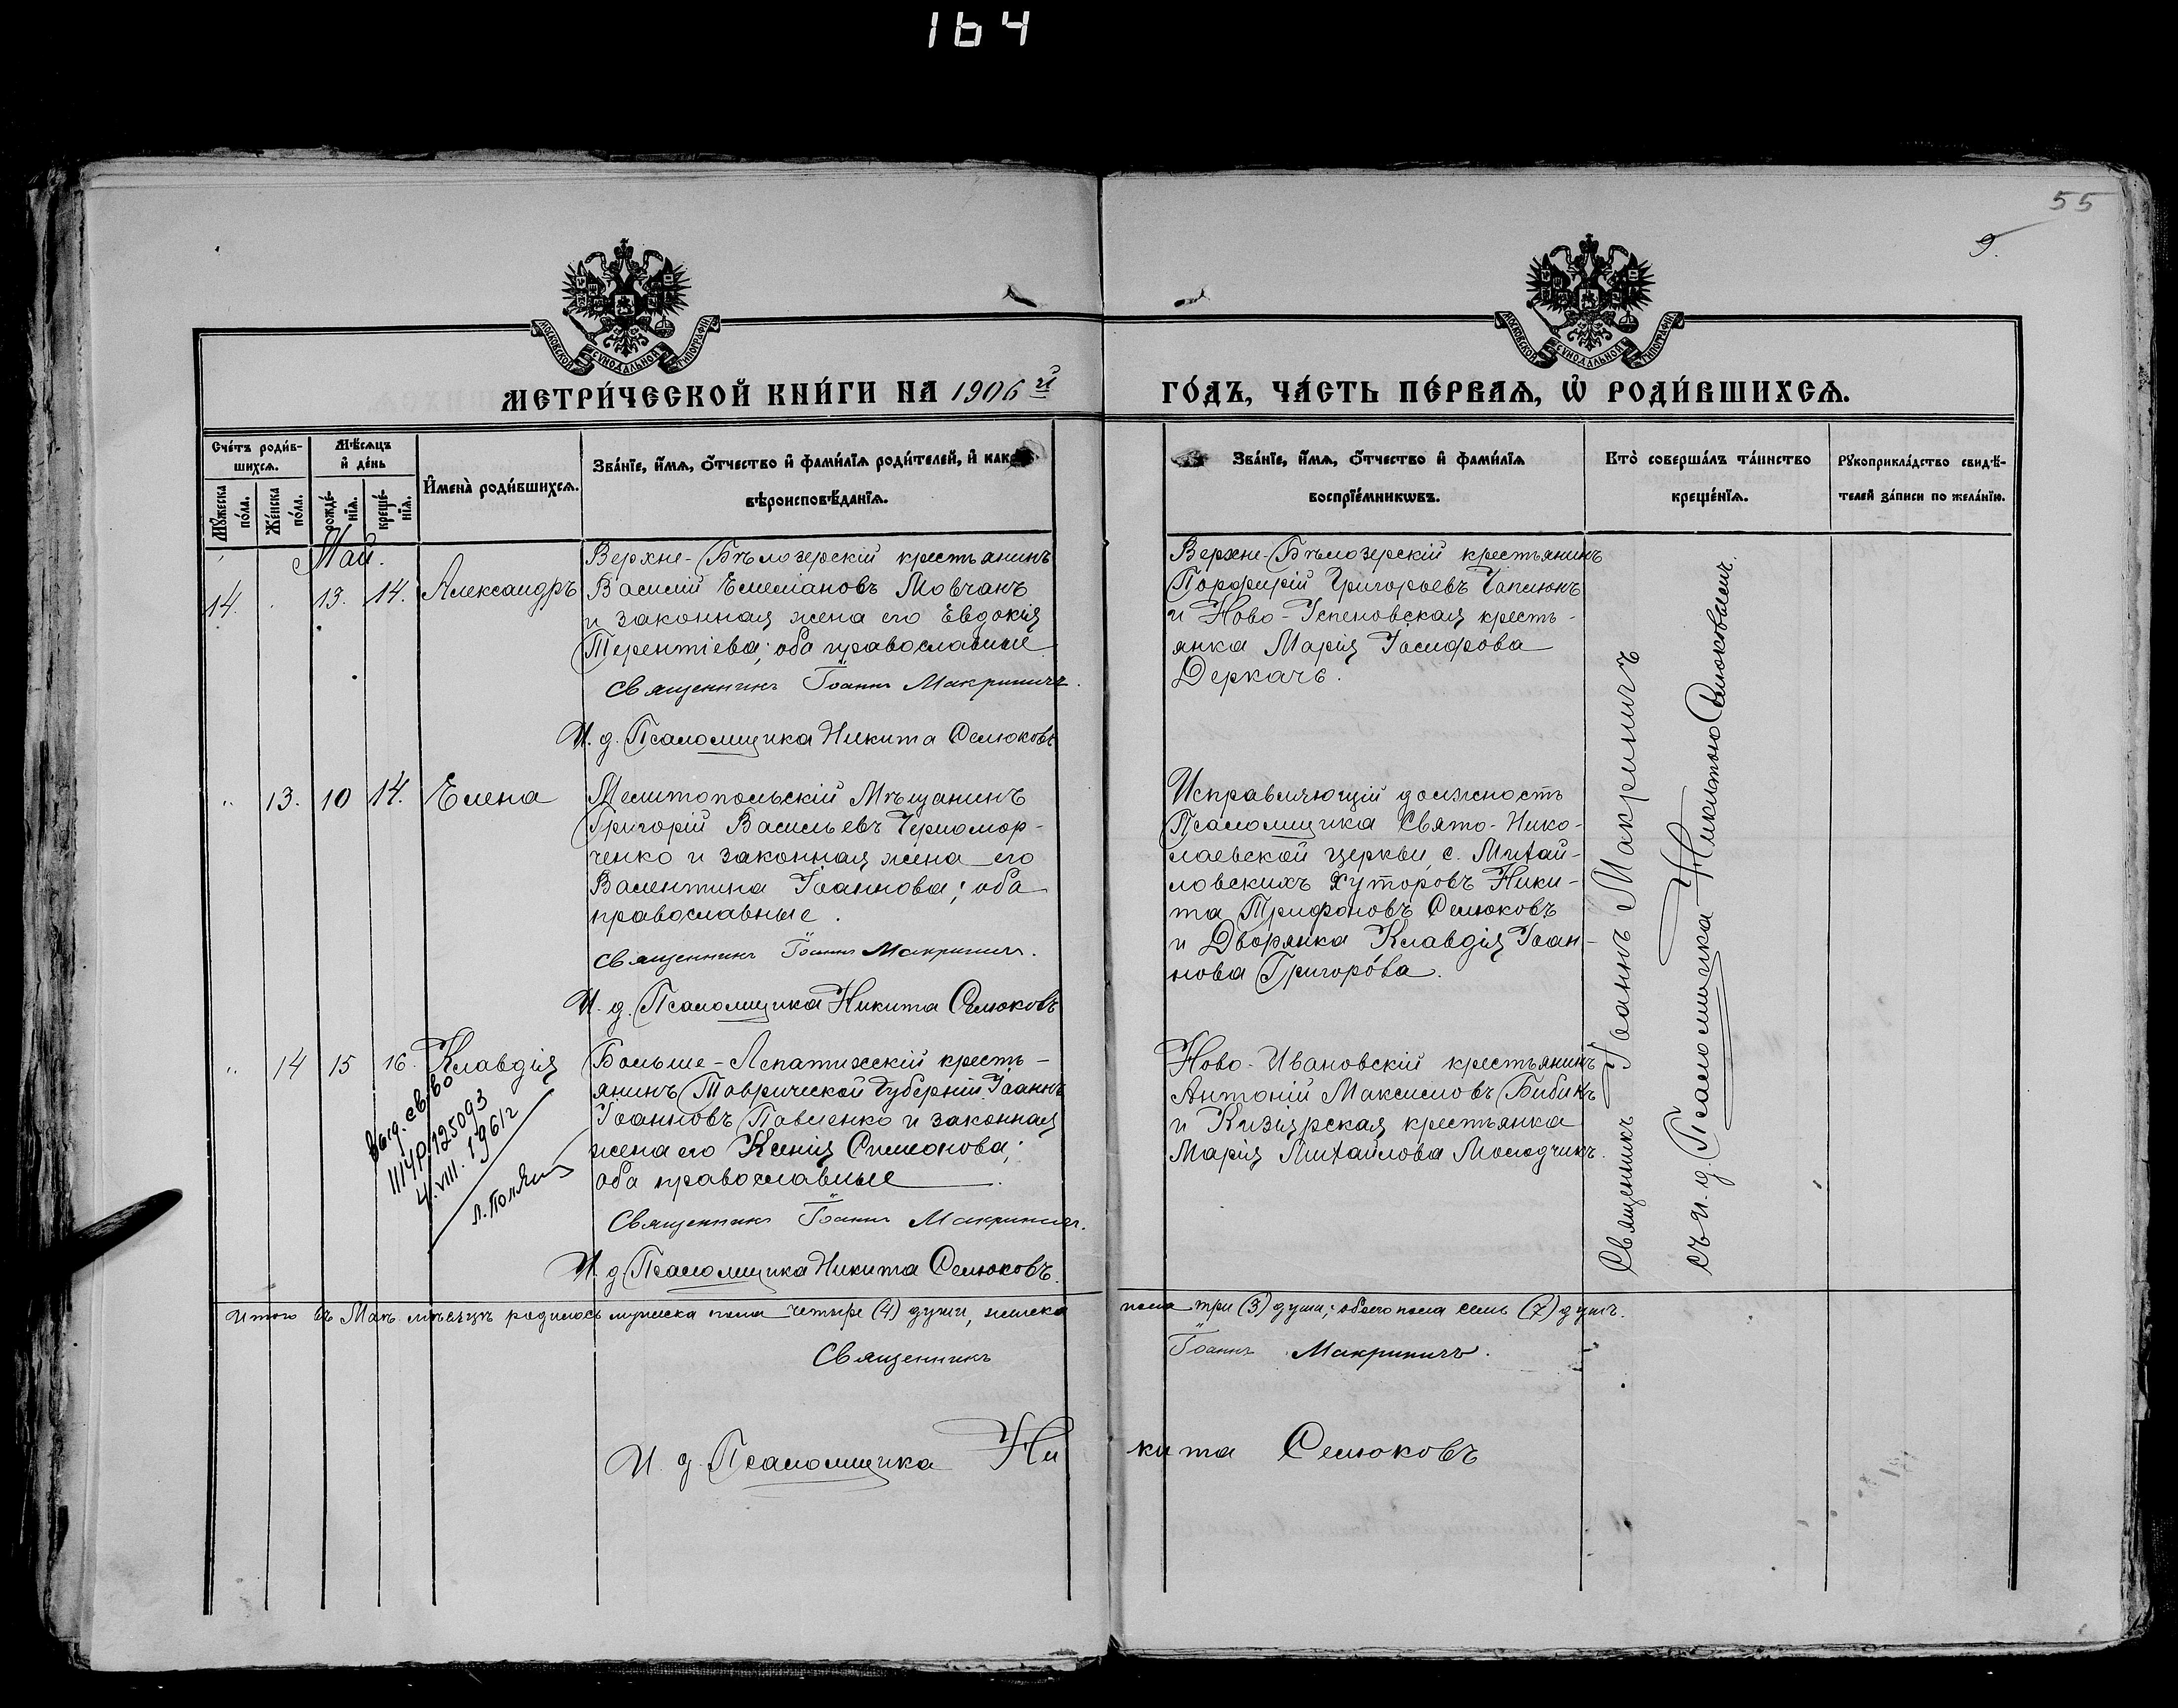 164
55
9.
МОСКОВСКОЙ СѴНОДАЛЬНОЙ ТИПОГРАФІИ
МОСКОВСКОЙ СѴНОДАЛЬНОЙ ТИПОГРАФІИ
МЕТРИ́ЧЕСКОЙ КНИ́ГИ НА 1906й
ГО́ДЪ, ЧА́СТЬ ПЕ́РВАѦ, Ѡ҆ РОДИ́ВШИХСѦ.
Сче́тъ роди́в-
шихсѧ.
Мѣ́сѧцъ
и҆ де́нь
Мꙋ́жеска по́ла.
Же́нска по́ла.
рожде́-нїѧ.
креще́-нїѧ.
И҆мена̀ роди́вшихсѧ.
Зва́нїе, и҆́мѧ, ѻ҆́тчество и҆ фами́лїѧ роди́телей, и҆ как
вѣроисповѣ́данїѧ.
Зва́нїе, и҆́мѧ, ѻ҆́тчество и҆ фами́лїѧ
воспрїе́мникѡвъ.
Кто̀ соверша́лъ та́инство
креще́нїѧ.
Рꙋкоприкла́дство свидѣ́-
телей за́писи по жела́нїю.
Май.
14. 13. 14. Александръ
Верхне-Бѣлозерскій крестьянинъ
Василій Емеліановъ Мовчанъ
и законная жена его Евдокія
Терентіева; оба православные
Священникъ Іоаннъ Макриничъ.
И. д. Псаломщика Никита Селюковъ
Верхне-Бѣлозерскій крестьянинъ
Порфирій Григорьевъ Чаплюкъ
и Ново-Успеновская кресть-
янка Марія Іосифова
Деркачъ.
" 13. 10 14. Елена
Мелитопольскій Мѣщанинъ
Григорій Васильевъ Черномор-
ченко и законная жена его
Валентина Іоаннова; оба
православные.
Священникъ Іоаннъ Макриничъ.
И. д. Псаломщика Никита Селюковъ
Исправляющій должность
Псаломщика Свято-Нико-
лаевской церкви, с. Михай-
ловскихъ Хуторовъ Ники-
та Трифоновъ Селюковъ
и Дворянка Клавдія Іоан-
нова Григоро́ва.
" 14 15 16. Клавдія
Больше-Лепатижскій кресть-
янинъ Таврической Губерніи Іоаннъ
Іоанновъ Павленко и законная
жена его Ксенія Симеонова;
оба православные
Священникъ Іоаннъ Макриничъ.
И. д. Псаломщика Никита Селюковъ.
Ново-Ивановскій крестьянинъ
Антоній Максимовъ Бибикъ
и Кизіярская крестьянка
Марія Михайлова Молодчикъ.
Выд. св-во
125093
4.VIII. 1961г
Священникъ Іоаннъ Макриничъ
съ и. д. Псаломщика Никитою Селюковымъ.
Итого въ Маѣ мѣсяцѣ родилось мужеска пола четыре (4) души, женска
пола три (3) души; обоего пола семь (7) душъ.
Священникъ
Іоаннъ Макриничъ.
И. д. Псаломщика Ни
кита Селюковъ